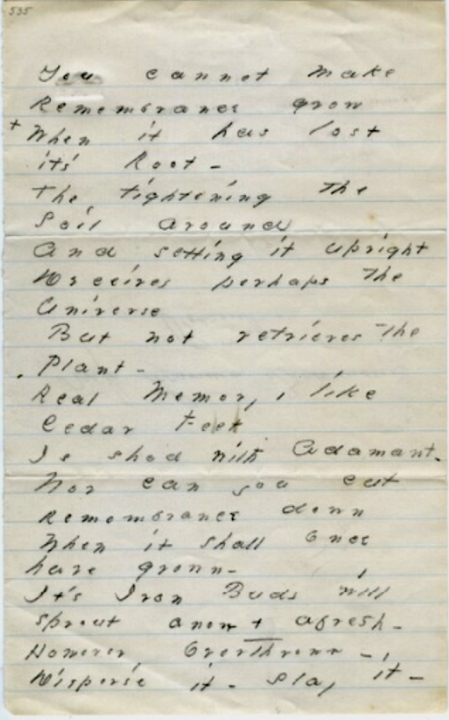 535
You cannot make
Remembrance grow
+ When it has lost
it's Root -
The tightening the
Soil around
And setting it upright
Deceives perhaps the
Universe
But not retrieves the
Plant -
Real Memory, like
Cedar Feet
Is shod with Adamant.
Nor can you cut
Remembrance down
When it shall once
have grown -
It's Iron Buds will
sprout anew + afresh -
However Overthrown -
Disperse it - Slay it -